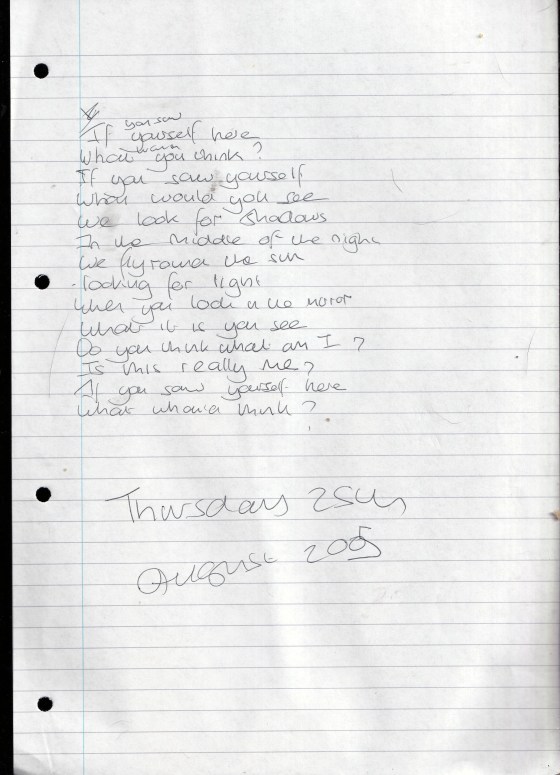 you saw
If yourself here
What you think?
If you saw yourself
What would you see
We look for shadows
In the middle of the night
We fly round the sun
looking for light
When you look in the mirror
What it is you see
Do you think what am I?
Is this really me?
If you saw yourself here
What think?
Thursday 25th
August 2005